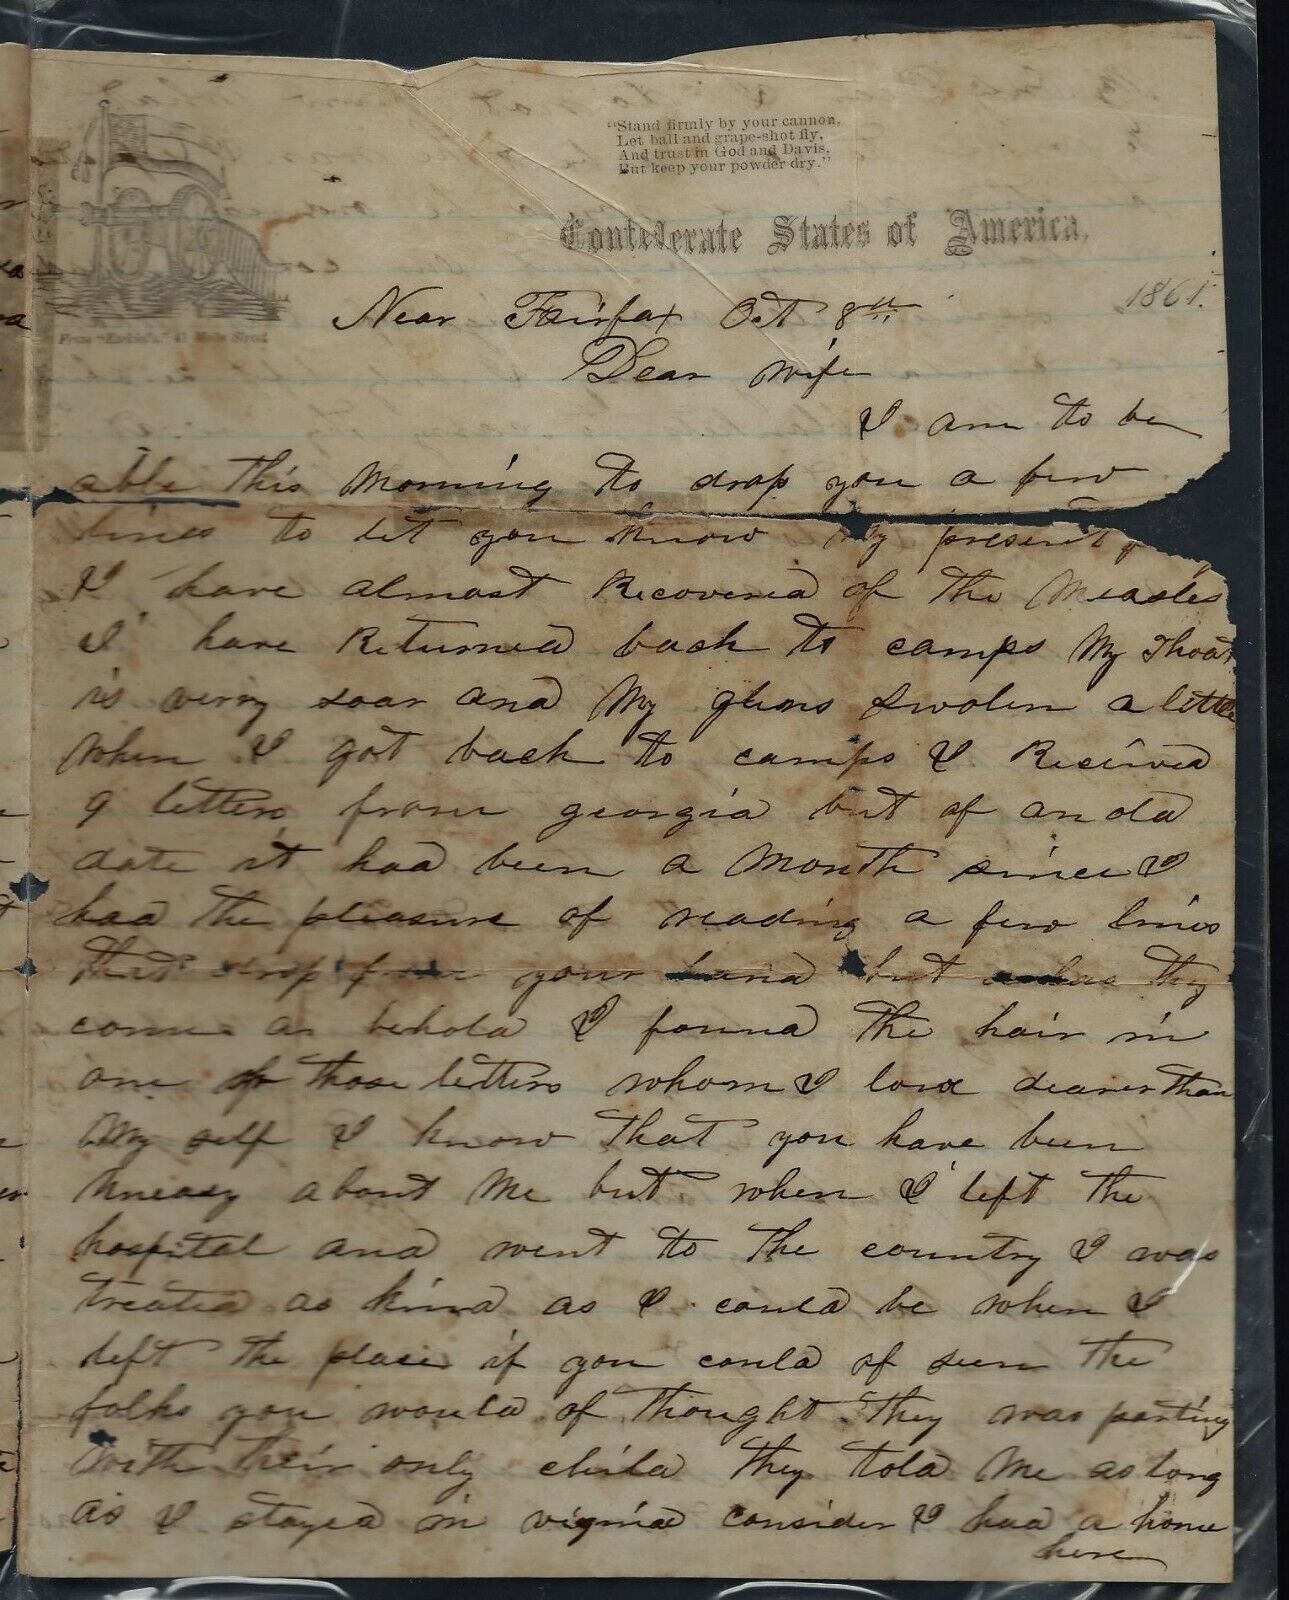 "Stand firmly by your cannon,
Let ball and grape-shot fly,
And trust in God and Davis,
But keep your powder dry."
Confederate States of America,
1861.
Near Fairfax Oct 8th
Dear wife
I am to be
able this Morning to drop you a few
lines to let you know my present
I have almost Recovered of the Measles
I have Returned back to camps My Thoat
is verry soar and My glans Swolen a little
when I got back to camps I Received
9 letters from georgia but of an old
date it had been a Month since I
had the pleasure of reading a few lines
that drop from your hand but they
come an behold I found the hair in
one of those letters whom I love dearer than
My self I know that you have been
Uneasy about Me but when I left the
hospital and went to the country I was
treated as kind as I could be when I
left the place if you could of seen the
folks you would of thought they was parting
with their only child they told Me as long
as I stayed in consider I had a home
here